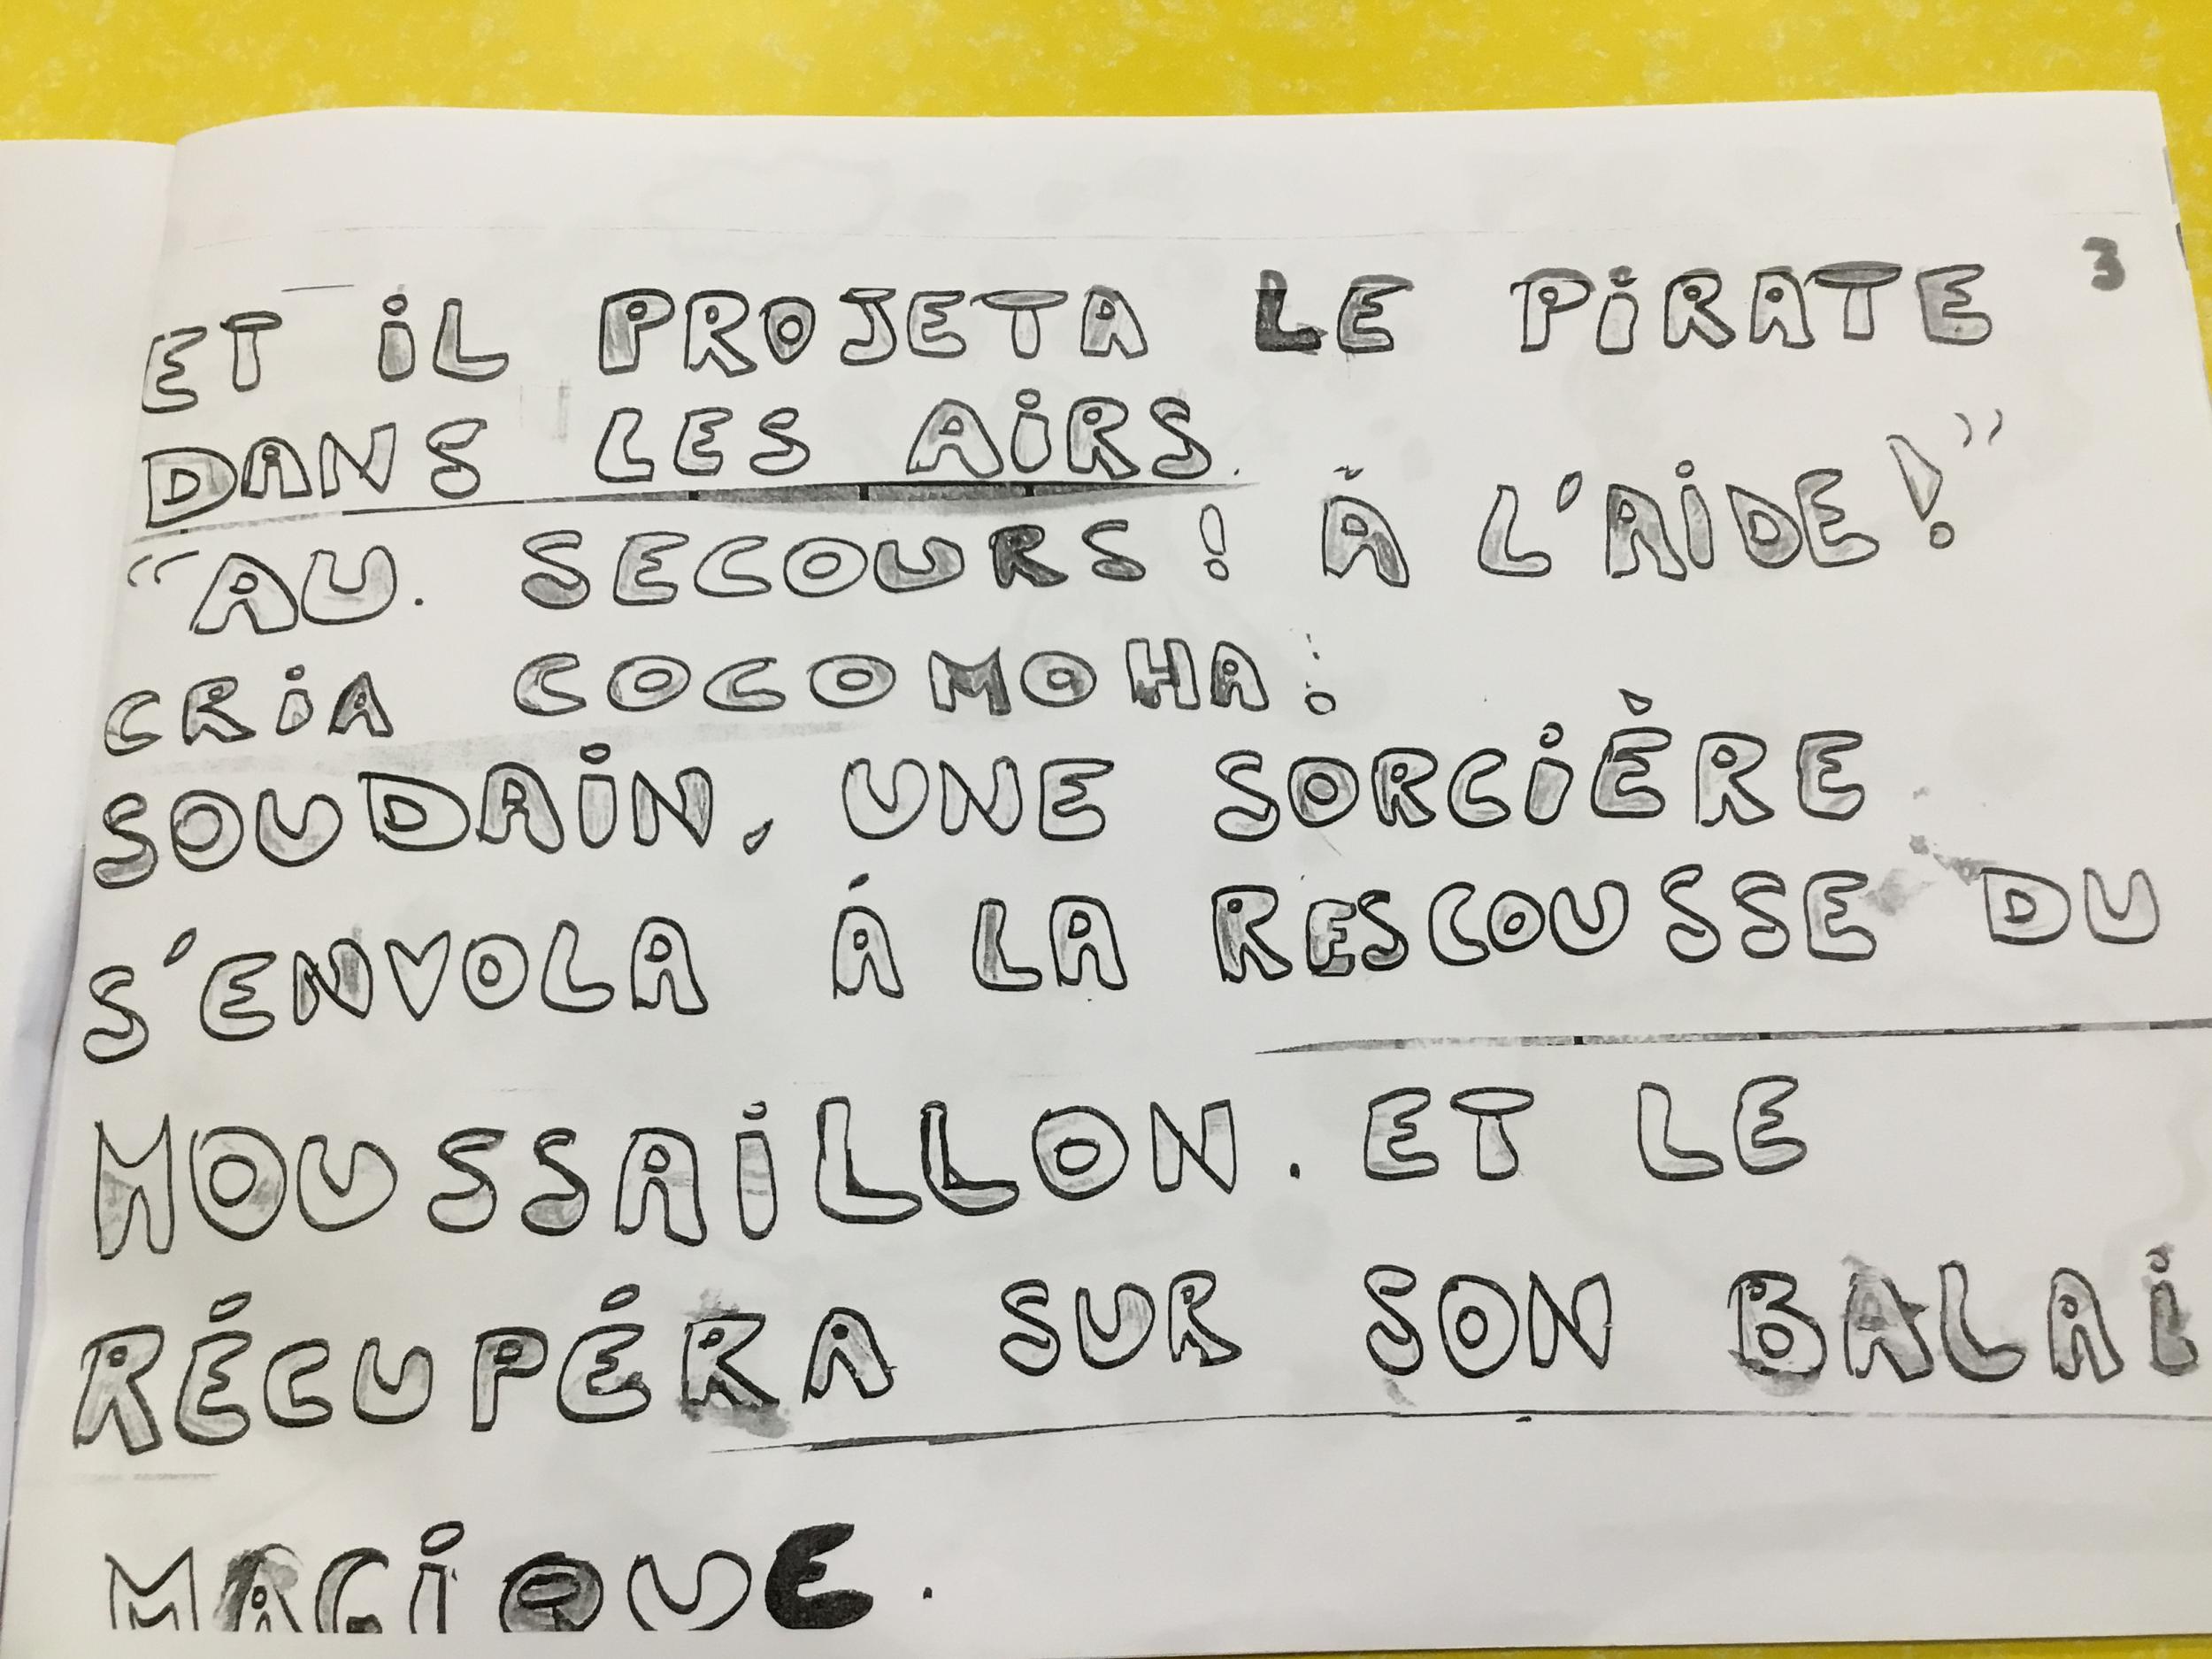 3
ET iL PROJETA LE PiRATE
DANS LES AiRS.
“AU. SECOURS! À L'AiDE!”
CRiA COCOMOHA:
SOUDAiN, UNE SORCiÈRE
S'ENVOLA Á LA RESCOUSSE DU
MOUSSAiLLON. ET LE
RÉCUPÉRA SUR SON BALAi
MAGiQUE.